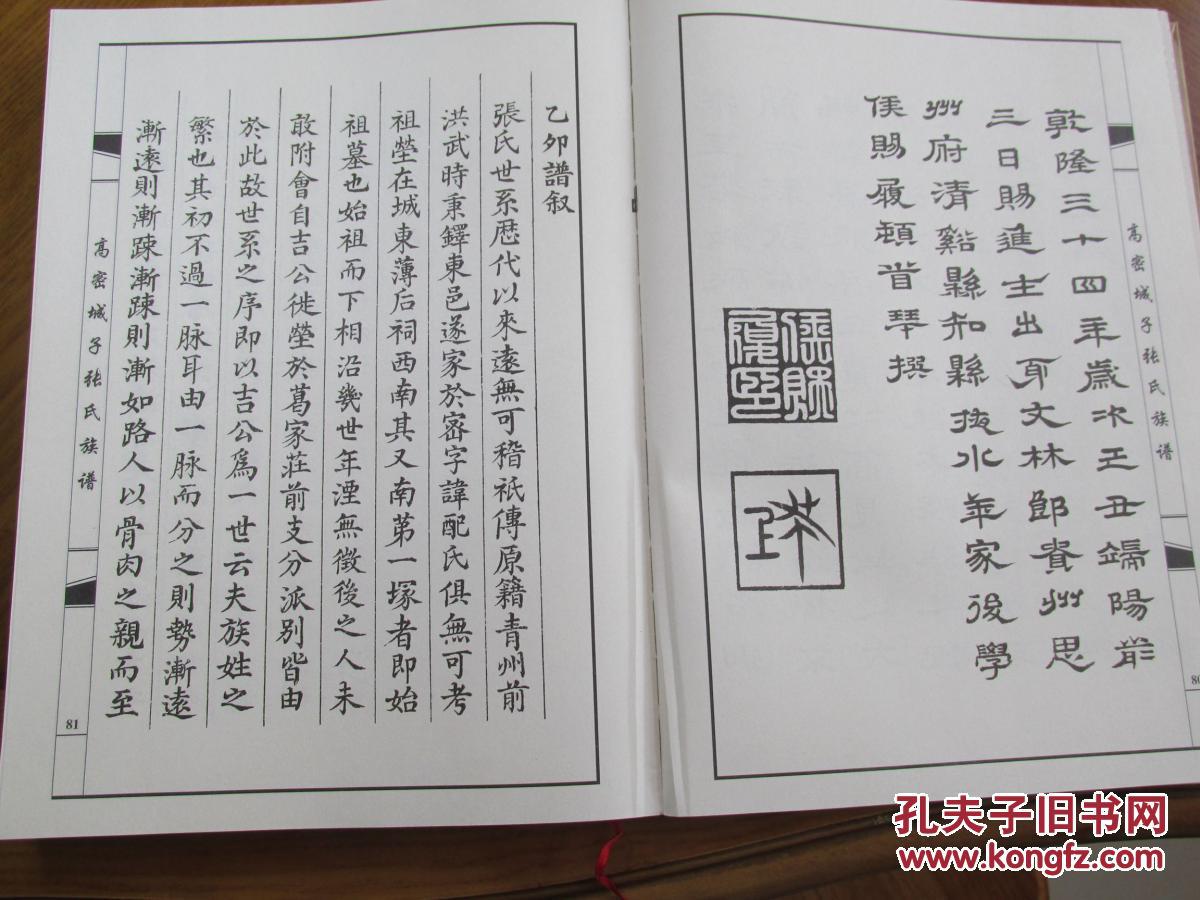 高密城子张氏族谱
80
乾隆三十四年歲次
丑端陽
三日賜進士出身文林郎貴州思
州府清谿縣知縣
水年家後學
侯賜履頓首拜撰
侯賜履印
乙卯譜叙
張氏世系歷代以來遠無可稽祇傳原籍青州前
洪武時秉鐸東邑遂家於密字諱配氏俱無可考
祖塋在城東薄后祠西南其又南第一塚者即始
祖墓也始祖而下相沿幾世年湮無徵後之人未
敢附會自吉公徙塋於葛家莊前支分派別皆由
於此故世系之序即以吉公爲一世云夫族姓之
繁也其初不過一脉耳由一脉而分之則勢漸遠
漸遠則漸踈漸踈則漸如路人以骨肉之親而至
高密城子张氏族谱
81
孔夫子旧书网
www.kongfz.com